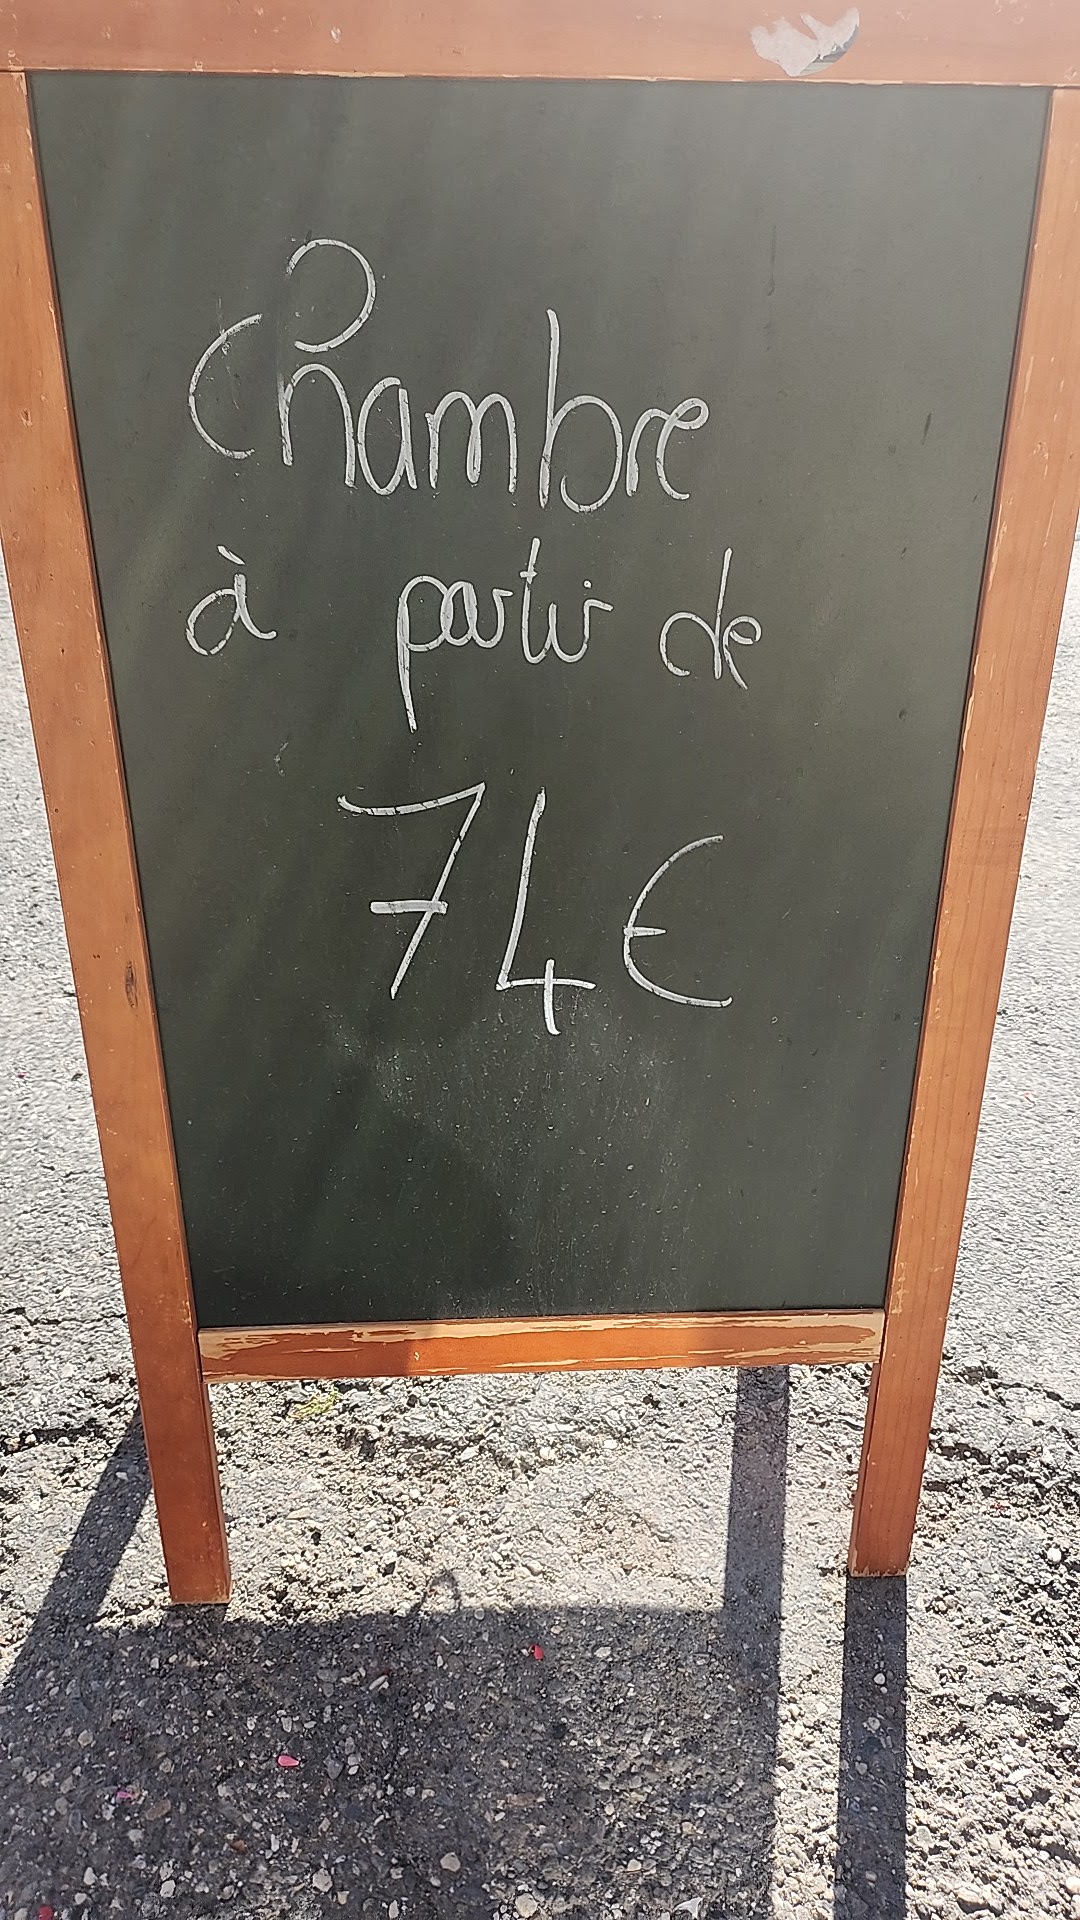 Chambre
à partir de
74€